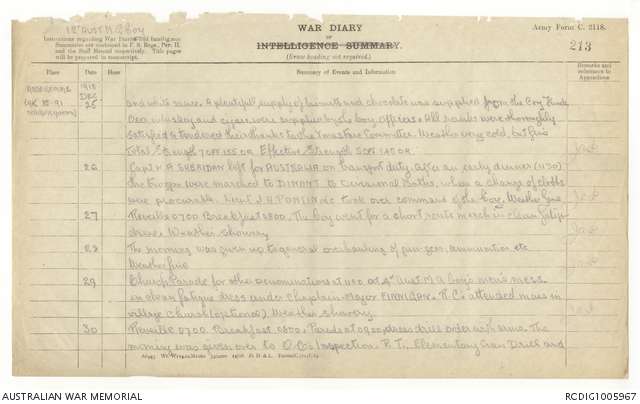 1st AUST. M.G. Coy
WAR DIARY
or
INTELLIGENCE SUMMARY.
(Erase heading not required.)
Army Form C. 2118.
213
Instructions regarding War Diaries and Intelligence
Summaries are contained in F. S. Regs., Part II.
and the Staff Manual respectively. Title pages
will be prepared in manuscript.
Place
Date
Hour
Summary of Events and Information
Remarks and
references to
Appendices
1918
DEC
25
and white sauce. A plentiful supply of biscuits and chocolate was supplied from the Coy Funds
Beer whiskey and cigars were supplied by the boy officers. All ranks were thoroughly
satisfied & tendered their thanks to the Xmas Tree Committee. Weather very cold, but fine
Total Strength 7 OFF 155 OR Effective Strength 5 OFF 140 OR
26
Capt H A SHERIDAN left for AUSTRALIA on transport duty. After an early dinner (1130)
the troops were marched to DINANT to Divisional Baths, where a change of clothes
were procurable. Lieut J.H. PONTIN took over command of the boy. Weather fine
27
Reveille 0700 Breakfast 0800. The boy went for a short route march in clean fatigue
dress. Weather showery
28
The morning was given up to general overhauling of gun gear, ammunition etc
Weather fine
29
Church Parade for other denominations at 1100 at 4th Aust M.G. Coys mens mess
in clean fatigue dress under Chaplain-Major FINNIGAN. R.C.s attended mass in
village Church (optional). Weather showery
30
Reveille 0700. Breakfast 0800. Parade at 0900 dress drill order with arms. The
morning was given over to O.C's Inspection. P.T., Elementary Gun Drill and
AUSTRALIAN WAR MEMORIAL
RCDIG1005967